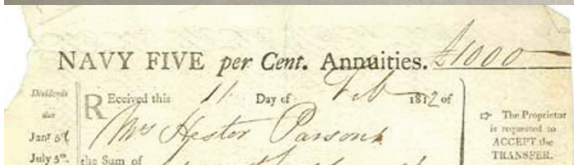 NAVY FIVE per Cent. Annuities. £1000
Dividends
due
Jany 5th
July 5th.
REceived this 11 Day of Feb 1812 of
Mrs Hester Parsons
the Sum of
☞ The Proprietor
is requested to
ACCEPT the
TRANSFER.